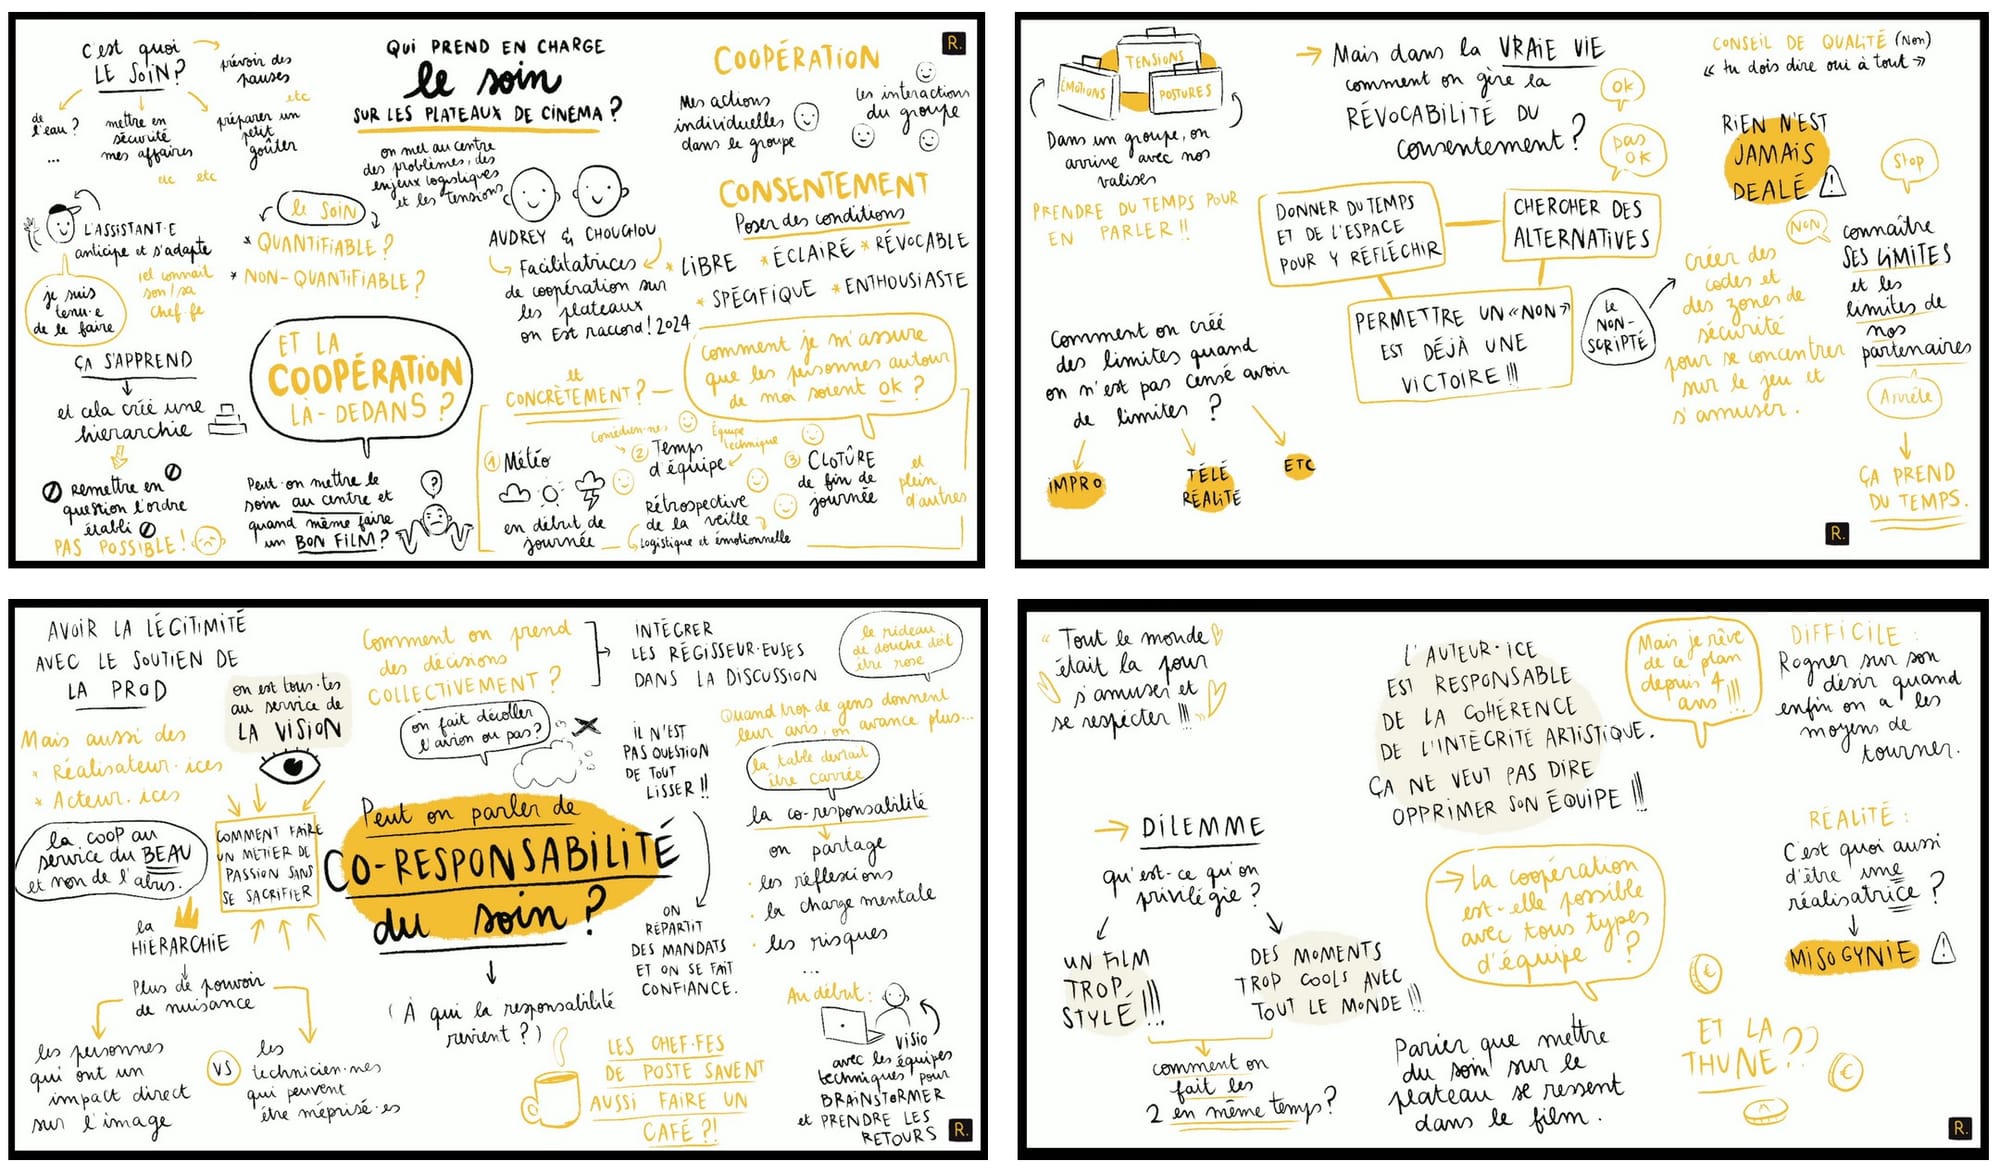 C'est quoi
LE SOIN?
prévoir des
pauses
etc
de
l'eau?
...
mettre en
sécurité
mes affaires
etc etc
préparer un
petit
goûter
QUI PREND EN CHARGE
le soin
SUR LES PLATEAUX DE CINÉMA?
on met au centre
des problèmes, des
enjeux logistiques
et les tensions
COOPÉRATION
R.
Mes actions
individuelles
dans le groupe
les interactions
du groupe
L'ASSISTANT·E
anticipe et s'adapte
iel connait
son/sa
chef·fe
je suis
tenu·e
de le faire
le SOIN
* QUANTIFIABLE?
* NON-QUANTIFIABLE?
AUDREY & CHOUCHOU
Facilitatrices
de coopération sur
les plateaux
on Est raccord! 2024
CONSENTEMENT
Poser des conditions
* LIBRE * ÉCLAIRÉ * RÉVOCABLE
* SPÉCIFIQUE * ENTHOUSIASTE
ÇA S'APPREND
et cela crée une
hiérarchie
Remettre en
question l'ordre
établi
PAS POSSIBLE!
ET LA
COOPÉRATION
LÀ-DEDANS?
Peut-on mettre le
soin au centre et
quand même faire
un BON FILM?
?
et
CONCRÈTEMENT?
Comment je m'assure
que les personnes autour
de moi soient OK?
1 Météo
en début de
journée
Comédien·nes
Équipe
technique
2 Temps
d'équipe
Rétrospective
de la veille
logistique et émotionnelle
3 CLOTÛRE
de fin de
journée
et
plein
d'autres
ÉMOTIONS
TENSIONS
POSTURES
Dans un groupe, on
arrive avec nos
valises
PRENDRE DU TEMPS POUR
EN PARLER!!
Mais dans la VRAIE VIE
comment on gère la
RÉVOCABILITÉ DU
consentement?
OK
pas
OK
CONSEIL DE QUALITÉ (Non)
« tu dois dire oui à tout »
RIEN N'EST
JAMAIS
DEALÉ
Stop
NON
DONNER DU TEMPS
ET DE L'ESPACE
POUR Y RÉFLÉCHIR
CHERCHER DES
ALTERNATIVES
PERMETTRE UN «NON»
EST DÉJÀ UNE
VICTOIRE!!!
LE
NON-
SCRIPTÉ
créer des
codes et
des zones de
sécurité
pour se concentrer
sur le jeu et
s'amuser.
connaître
SES LIMITES
et les
limites de
nos
partenaires
Arrête
ÇA PREND
DU TEMPS.
Comment on créé
des limites quand
on n'est pas censé avoir
de limites?
IMPRO
TÉLÉ
RÉALITÉ
ETC
R.
AVOIR LA LÉGITIMITÉ
AVEC LE SOUTIEN DE
LA PROD
Mais aussi des
* Réalisateur·ices
* Acteur·ices
on est tous·tes
au service de
LA VISION
Comment on prend
des décisions
COLLECTIVEMENT?
INTÉGRER
LES RÉGISSEUR·EUSES
DANS LA DISCUSSION
le rideau
de douche doit
être rose
on fait décoller
l'avion ou pas?
IL N'EST
PAS QUESTION
DE TOUT
LISSER!!
Quand trop de gens donnent
leur avis, on avance plus...
la table devrait
être carrée
la coop au
service du BEAU
et non de l'abus.
COMMENT FAIRE
UN MÉTIER DE
PASSION SANS
SE SACRIFIER
Peut on parler de
CO-RESPONSABILITÉ
du soin?
(À qui la responsabilité
revient?)
ON
RÉPARTIT
DES MANDATS
ET ON SE FAIT
CONFIANCE.
la co-responsabilité
on partage
· les réflexions
· la charge mentale
· les risques
...
la
HIÉRARCHIE
Plus de pouvoir
de nuisance
les personnes
qui ont un
impact direct
sur l'image
VS
les
technicien·nes
qui peuvent
être méprisé·es
LES CHEF·FES
DE POSTE SAVENT
AUSSI FAIRE UN
CAFÉ?!
Au début:
VISIO
avec les équipes
techniques pour
BRAINSTORMER
et PRENDRE LES
RETOURS
R.
"Tout le monde
était là pour
s'amuser et
se respecter!!!"
L'AUTEUR·ICE
EST RESPONSABLE
DE LA COHÉRENCE
DE L'INTÉGRITÉ ARTISTIQUE.
ÇA NE VEUT PAS DIRE
OPPRIMER SON ÉQUIPE!!!
Mais je rêve
de ce plan
depuis 4
ans!!!
DIFFICILE:
Rogner sur son
désir quand
enfin on a les
moyens de
tourner.
DILEMME
qu'est-ce qu'on
privilégie?
UN FILM
TROP
STYLÉ!!!
DES MOMENTS
TROP COOLS AVEC
TOUT LE MONDE!!!
comment on
fait les
2 en même temps?
La coopération
est-elle possible
avec tous types
d'équipe?
Parier que mettre
du soin sur le
plateau se ressent
dans le film.
RÉALITÉ:
C'est quoi aussi
d'être une
réalisatrice?
MISOGYNIE
€
ET LA
THUNE??
€
R.